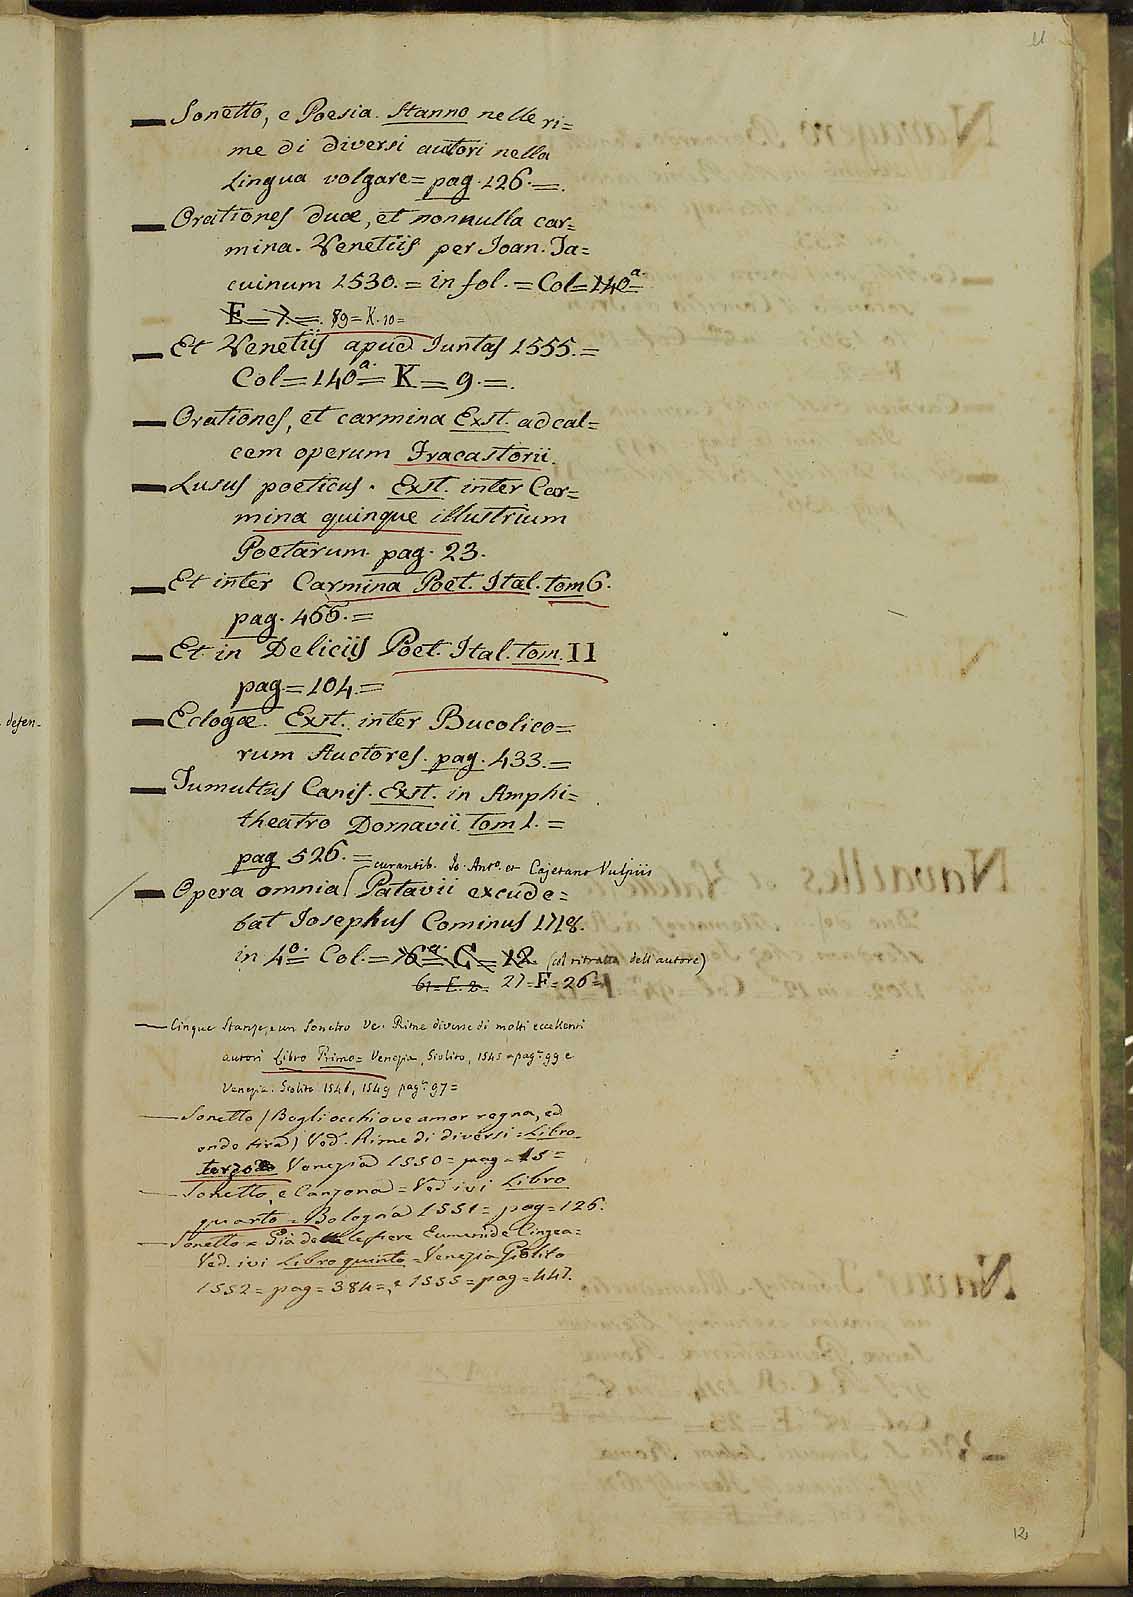 11
— Sonetto, e Poesia. Stanno nelle ri=
me di diversi autori nella
Lingua volgare= pag. 126.=.
— Orationes duæ, et nonnulla car=
mina. Venetiis per Ioan. Ta=
cuinum 1530. = in fol. = Col= 140ª=
E = 7. =. 89= K. 10=
— Et Venetiis apud Iuntas 1555. =
Col= 140ª= K = 9. =.
— Orationes, et carmina Exst. ad cal=
cem operum Fracastorii.
— Lusus poeticus. Exst. inter Car=
mina quinque illustrium
Poetarum. pag. 23.
— Et inter Carmina Poet. Ital. tom 6.
pag. 466. =
— Et in Deliciis Poet. Ital. tom. II
pag. = 104. =
defen-
— Eclogæ. Exst. inter Bucolico=
rum Auctores. pag. 433. =
— Tumultus Canis. Exst. in Amphi=
theatro Dornavii tom 1. =
pag 526. =
curantib. Io. Antº. et Cajetano Vulpiis
— Opera omnia Patavii excude=
bat Iosephus Cominus 1718.
in 4º= Col. = 16ª= C = 12. (col ritratto dell'autore)
61= E. 2= 27= F= 26=
— Cinque Stanze, e un Sonetto Ve. Rime diverse di molti eccellenti
autori Libro Primo= Venezia, Giolito, 1545 = pag. 99 e
Venezia. Giolito 1546, 1549 pag. 97=
— Sonetto (Begli occhi ove amor regna, ed
onde tira) Ved. Rime di diversi= Libro
terzo Venezia 1550= pag= 15=
— Sonetto, e Canzona= Ved ivi Libro
quarto= Bologna 1551= pag= 126.
— Sonetto = Già fere
Ved. ivi Libro quinto= Venezia Giolito
1552= pag= 384=, e 1555= pag= 447.
12